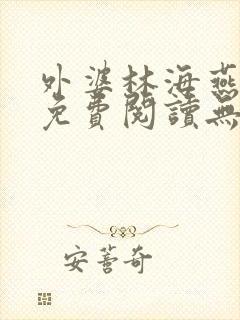 外婆林海燕
免費閱讀無
安薈奇